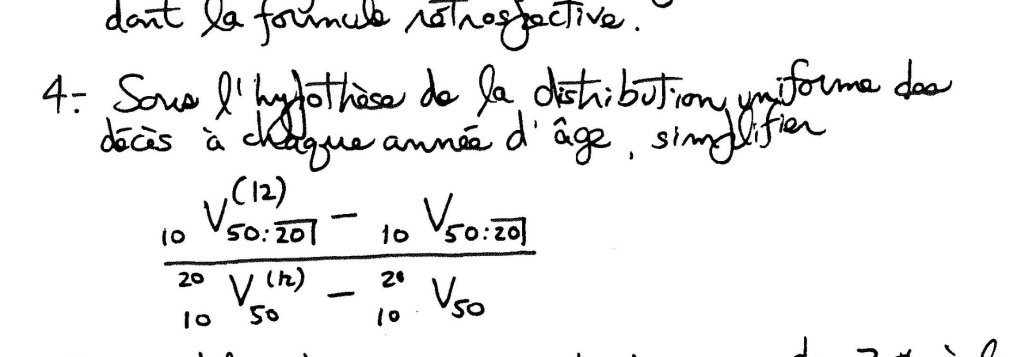 dont la formule rétrospective.
4- Sous l'hypothèse de la distribution uniforme des
décès à chaque année d'âge, simplifier
₁₀V⁽¹²⁾50:20̅| − ₁₀V50:20̅|
²⁰₁₀V⁽¹²⁾50 − ²⁰₁₀V50